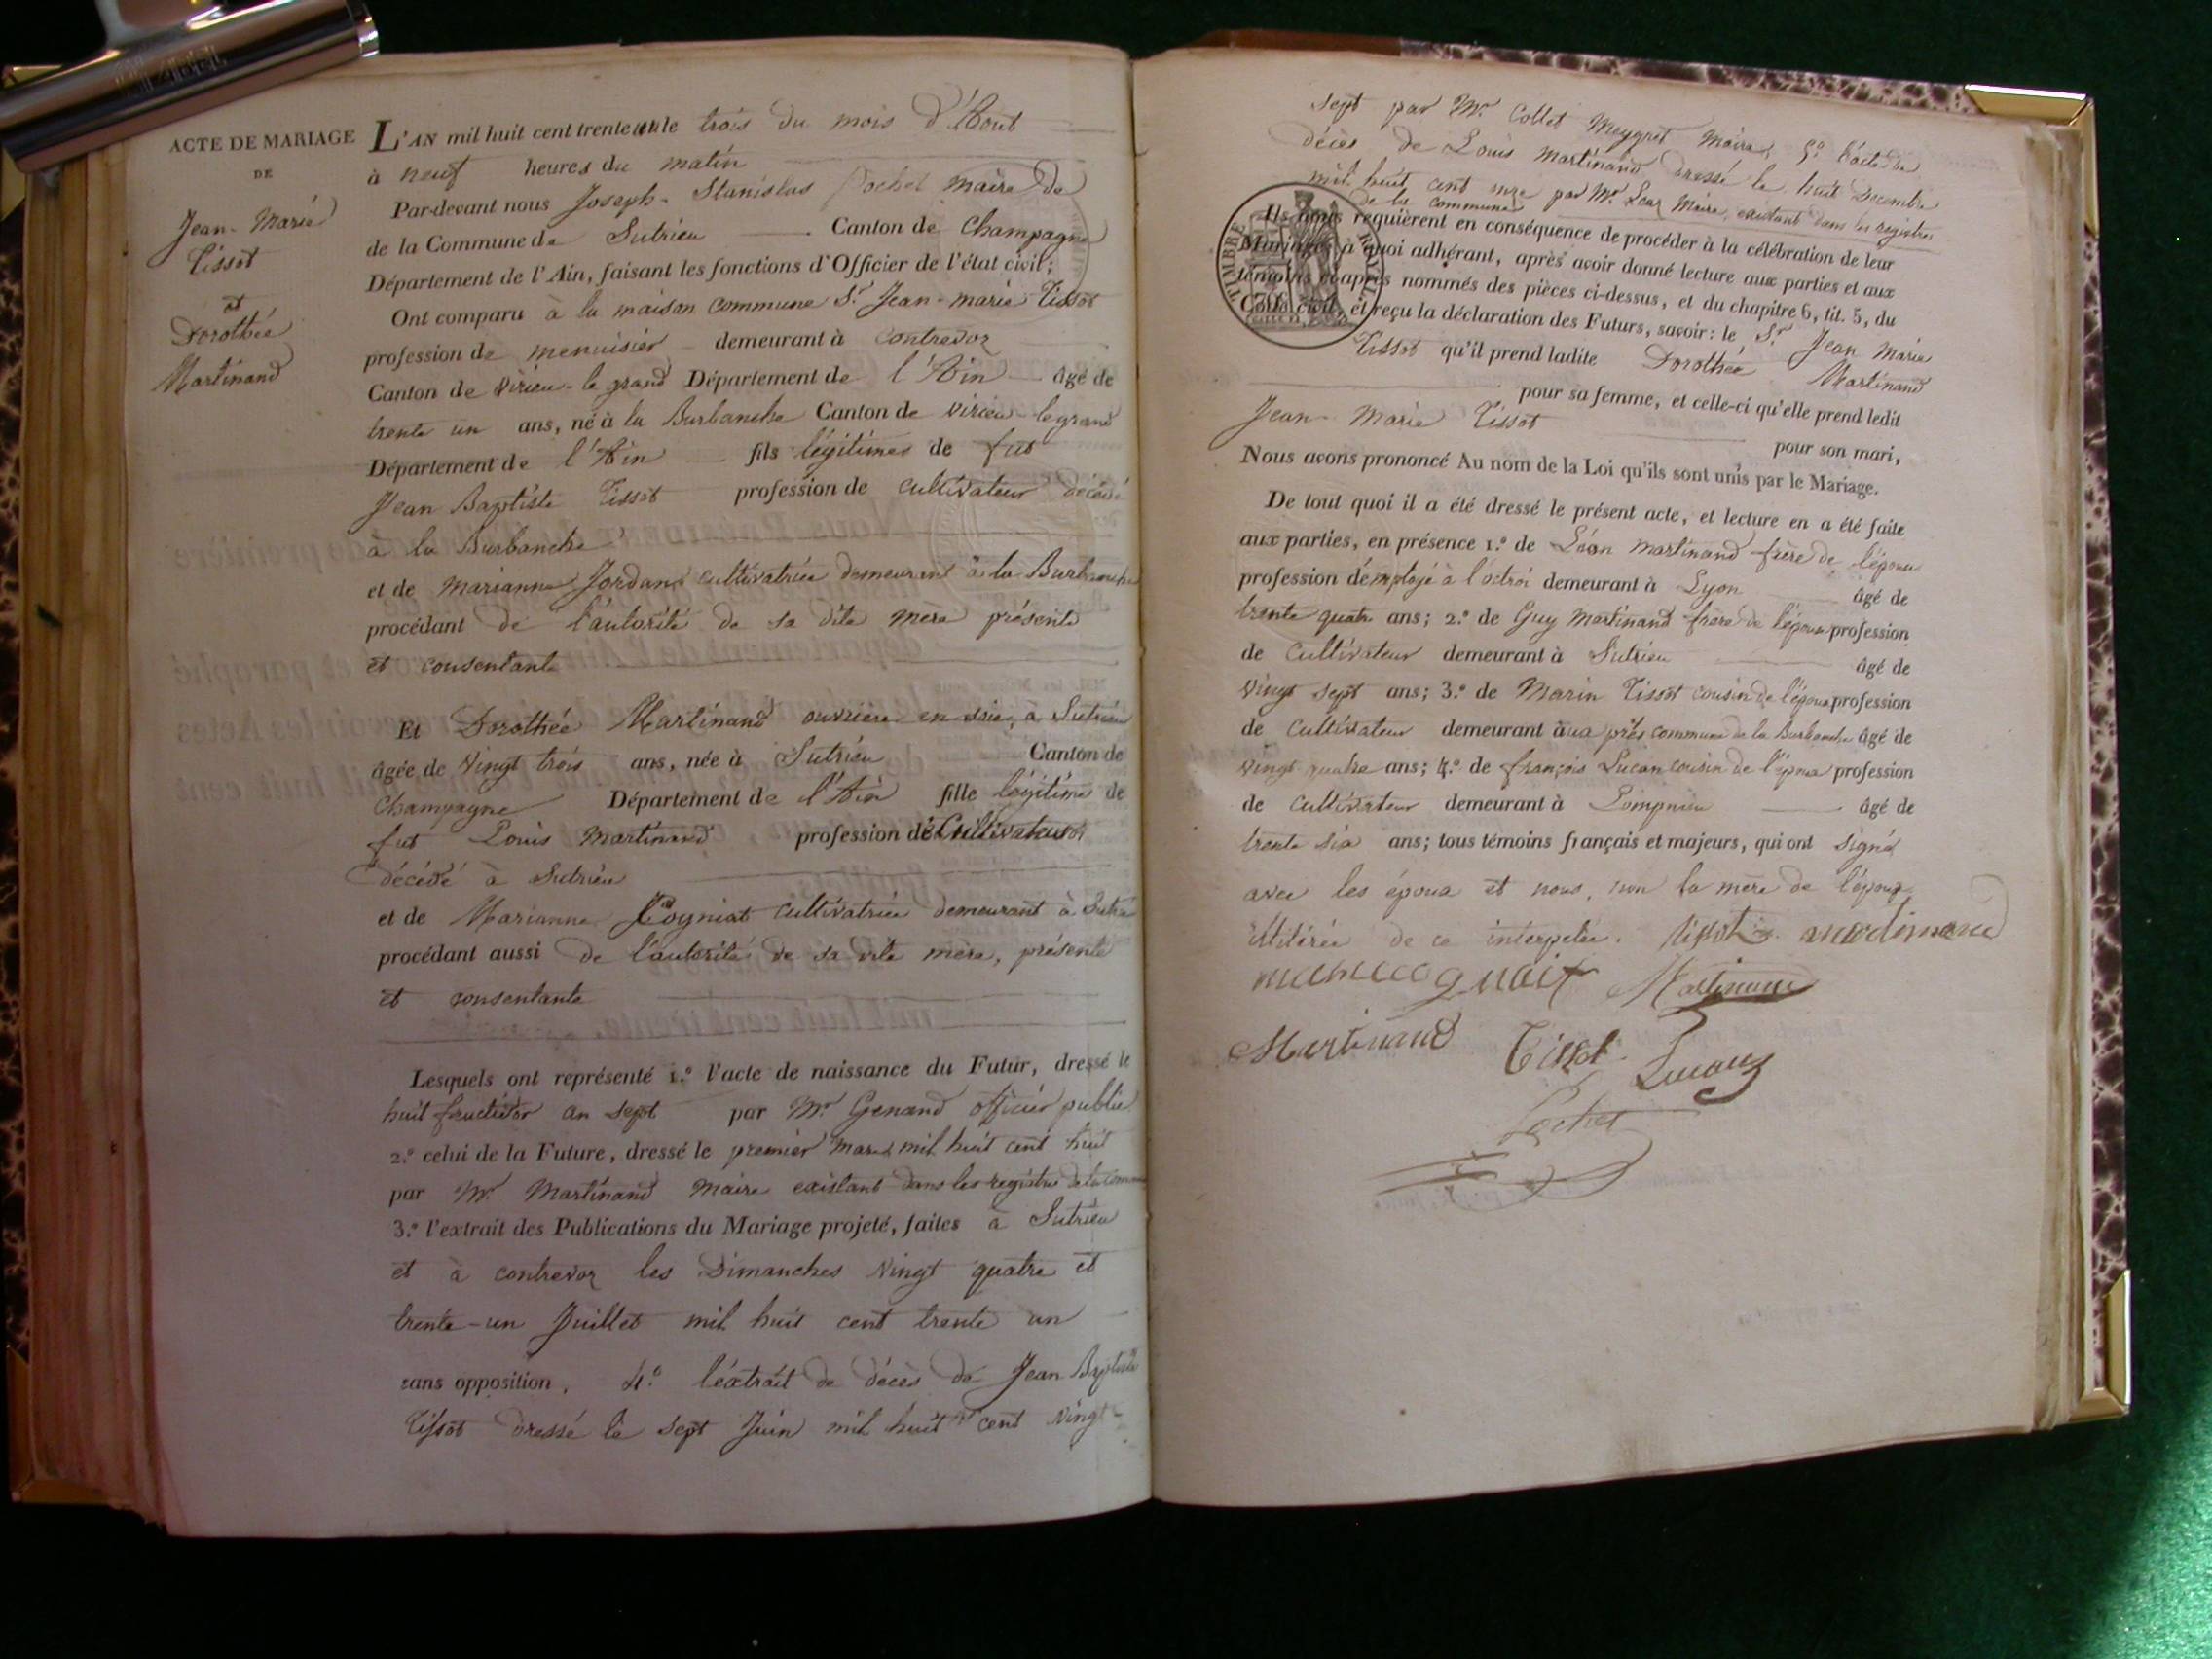 ACTE DE MARIAGE
DE
Jean-Marie
Tissot
et
Dorothée
Martinand
L'AN mil huit cent trente un le trois du mois d'Aout
à neuf heures du matin
Par-devant nous Joseph-Stanislas Pochet maire de
de la Commune de Sutrieu Canton de Champagne
Département de l'Ain, faisant les fonctions d'Officier de l'état civil;
Ont comparu à la maison commune Sr Jean-marie Tissot
profession de menuisier demeurant à Contrevoz
Canton de Virieu-le grand Département de l'Ain âgé de
trente un ans, né à la Burbanche Canton de Virieu-le grand
Département de l'Ain fils légitimes de fut
Jean Baptiste Tissot profession de cultivateur décédé
à la Burbanche
et de Marianne Jordan cultivatrice demeurant à la Burbanche
procédant de l'autorité de sa dite mère présente
et consentante
Et Dorothée Martinand ouvrière en soie, à Sutrieu
âgée de vingt trois ans, née à Sutrieu Canton de
Champagne Département de l'Ain fille légitime de
fut Louis Martinand profession de Cultivateur
décédé à Sutrieu
et de Marianne Cogniat cultivatrice demeurant à Sutrieu
procédant aussi de l'autorité de sa dite mère, présente
et consentante
Lesquels ont représenté 1.º l'acte de naissance du Futur, dressé le
huit fructidor an sept par Mr Genand officier public
2.º celui de la Future, dressé le premier mars mil huit cent huit
par Mr Martinand Maire existant dans les registres de la commune
3.º l'extrait des Publications du Mariage projeté, faites à Sutrieu
et à contrevoz les Dimanches vingt quatre et
trente-un Juillet mil huit cent trente un
sans opposition, 4.º l'extrait de décès de Jean Baptiste
Tissot dressé le sept Juin mil huit cent vingt-
sept par Mr Collet Meygret Maire, 5º l'acte de
décès de Louis Martinand dressé le huit Decembre
mil huit cent onze par Mr Maire, existant dans les registres
de la commune
Ils nous requièrent en conséquence de procéder à la célébration de leur
Mariage; à quoi adhérant, après avoir donné lecture aux parties et aux
témoins ci-après nommés des pièces ci-dessus, et du chapitre 6, tit. 5, du
Code civil, et reçu la déclaration des Futurs, savoir: le Sr Jean Marie
Tissot qu'il prend ladite Dorothée Martinand
pour sa femme, et celle-ci qu'elle prend ledit
Jean-Marie Tissot
pour son mari,
TIMBRE ROYAL
Nous avons prononcé Au nom de la Loi qu'ils sont unis par le Mariage.
De tout quoi il a été dressé le présent acte, et lecture en a été faite
aux parties, en présence 1.º de Léon Martinand frère de l'épouse
profession d'employé à l'octroi demeurant à Lyon âgé de
trente quatre ans; 2.º de Guy Martinand frère de l'épouse profession
de Cultivateur demeurant à Sutrieu âgé de
vingt sept ans; 3.º de Marin Tissot cousin de l'époux profession
de Cultivateur demeurant à commune de la Burbanche âgé de
vingt quatre ans; 4.º de françois Luçan cousin de l'époux profession
de Cultivateur demeurant à Lompnieu âgé de
trente six ans; tous témoins français et majeurs, qui ont signé
avec les époux et nous, non la mère de l'époux
illitérée de ce interpelée. Tissot martinand
Martinand
Martinand Tissot Luçan
Pochet